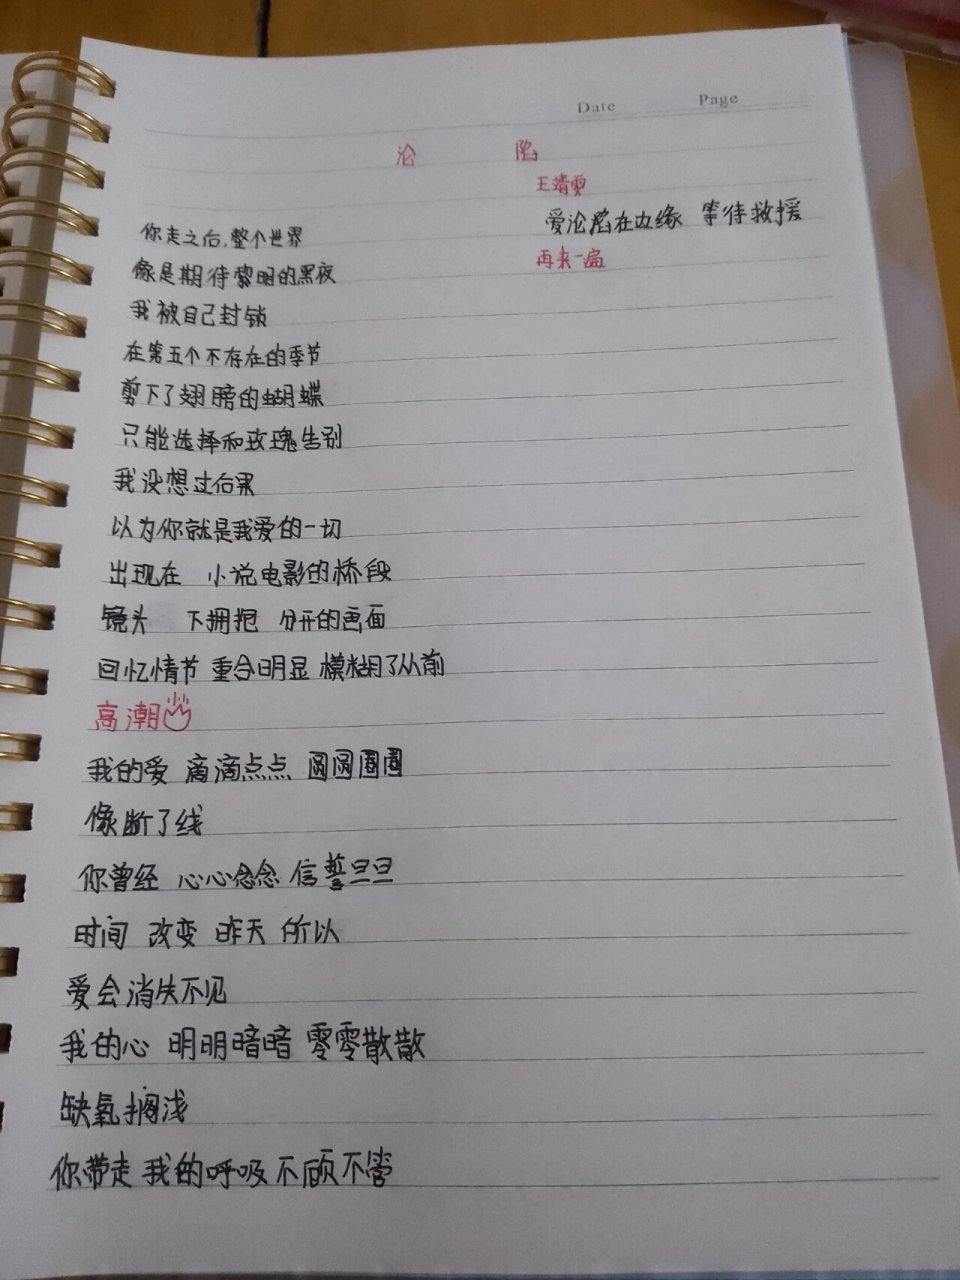 Date Page
沦 陷
王靖雯
你走之后,整个世界
像是期待黎明的黑夜
我被自己封锁
在第五个不存在的季节
剪下了翅膀的蝴蝶
只能选择和玫瑰告别
我没想过后果
以为你就是我爱的一切
出现在 小说电影的桥段
镜头 下拥抱 分开的画面
回忆情节 重合明显 模糊了从前
高潮
我的爱 滴滴点点 圆圆圈圈
像断了线
你曾经 心心念念 信誓旦旦
时间 改变 昨天 所以
爱会消失不见
我的心 明明暗暗 零零散散
缺氧搁浅
你带走 我的呼吸 不顾不管
爱沦陷在边缘 等待救援
再来一遍